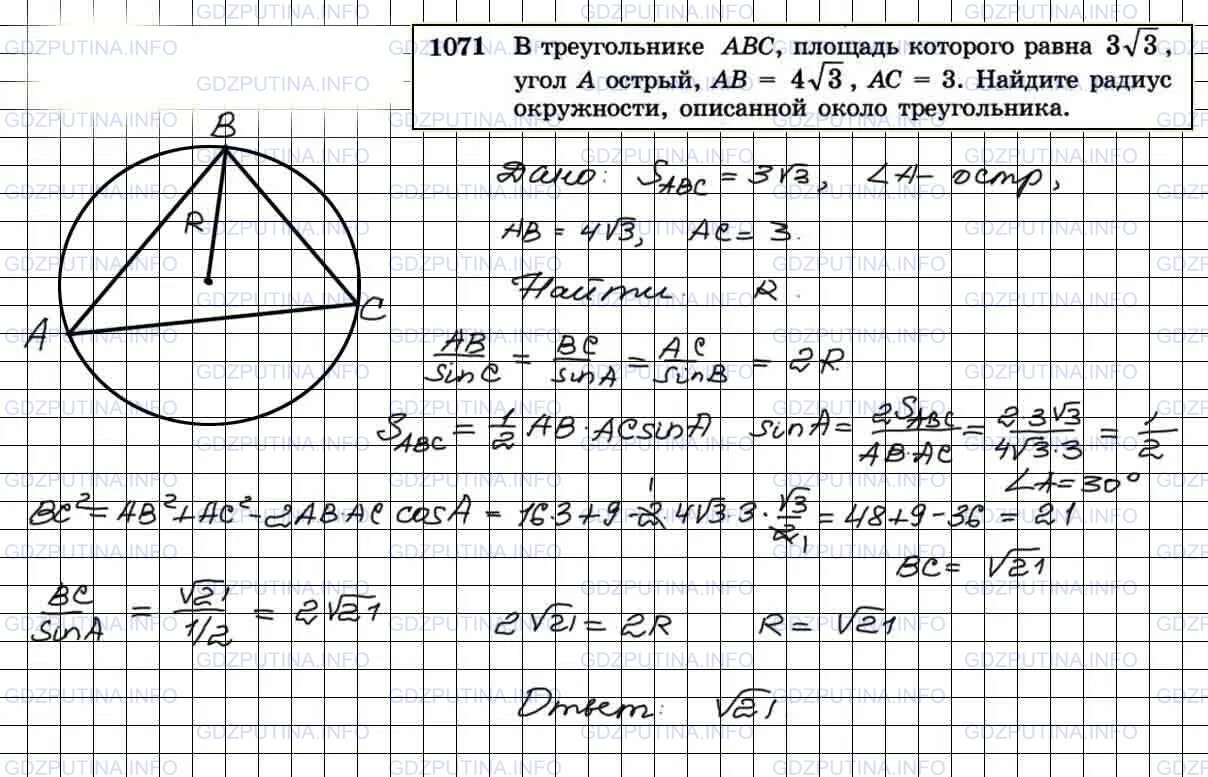 1071 В треугольнике ABC, площадь которого равна 3√3,
угол A острый, AB = 4√3, AC = 3. Найдите радиус
окружности, описанной около треугольника.
B
R
A
C
Дано: S_ABC = 3√3, ∠A – остр,
AB = 4√3, AC = 3.
Найти: R.
AB/sinC = BC/sinA = AC/sinB = 2R
S_ABC = 1/2 AB·AC sinA sinA = 2S_ABC/AB·AC = 2·3√3/4√3·3 = 1/2
∠A = 30°
BC² = AB² + AC² - 2AB·AC cosA = 16·3 + 9 - 2·4√3·3·√3/2 = 48 + 9 - 36 = 21
BC = √21
BC/sinA = √21/1/2 = 2√21 2√21 = 2R R = √21
Ответ: √21
GDZPUTINA.INFO